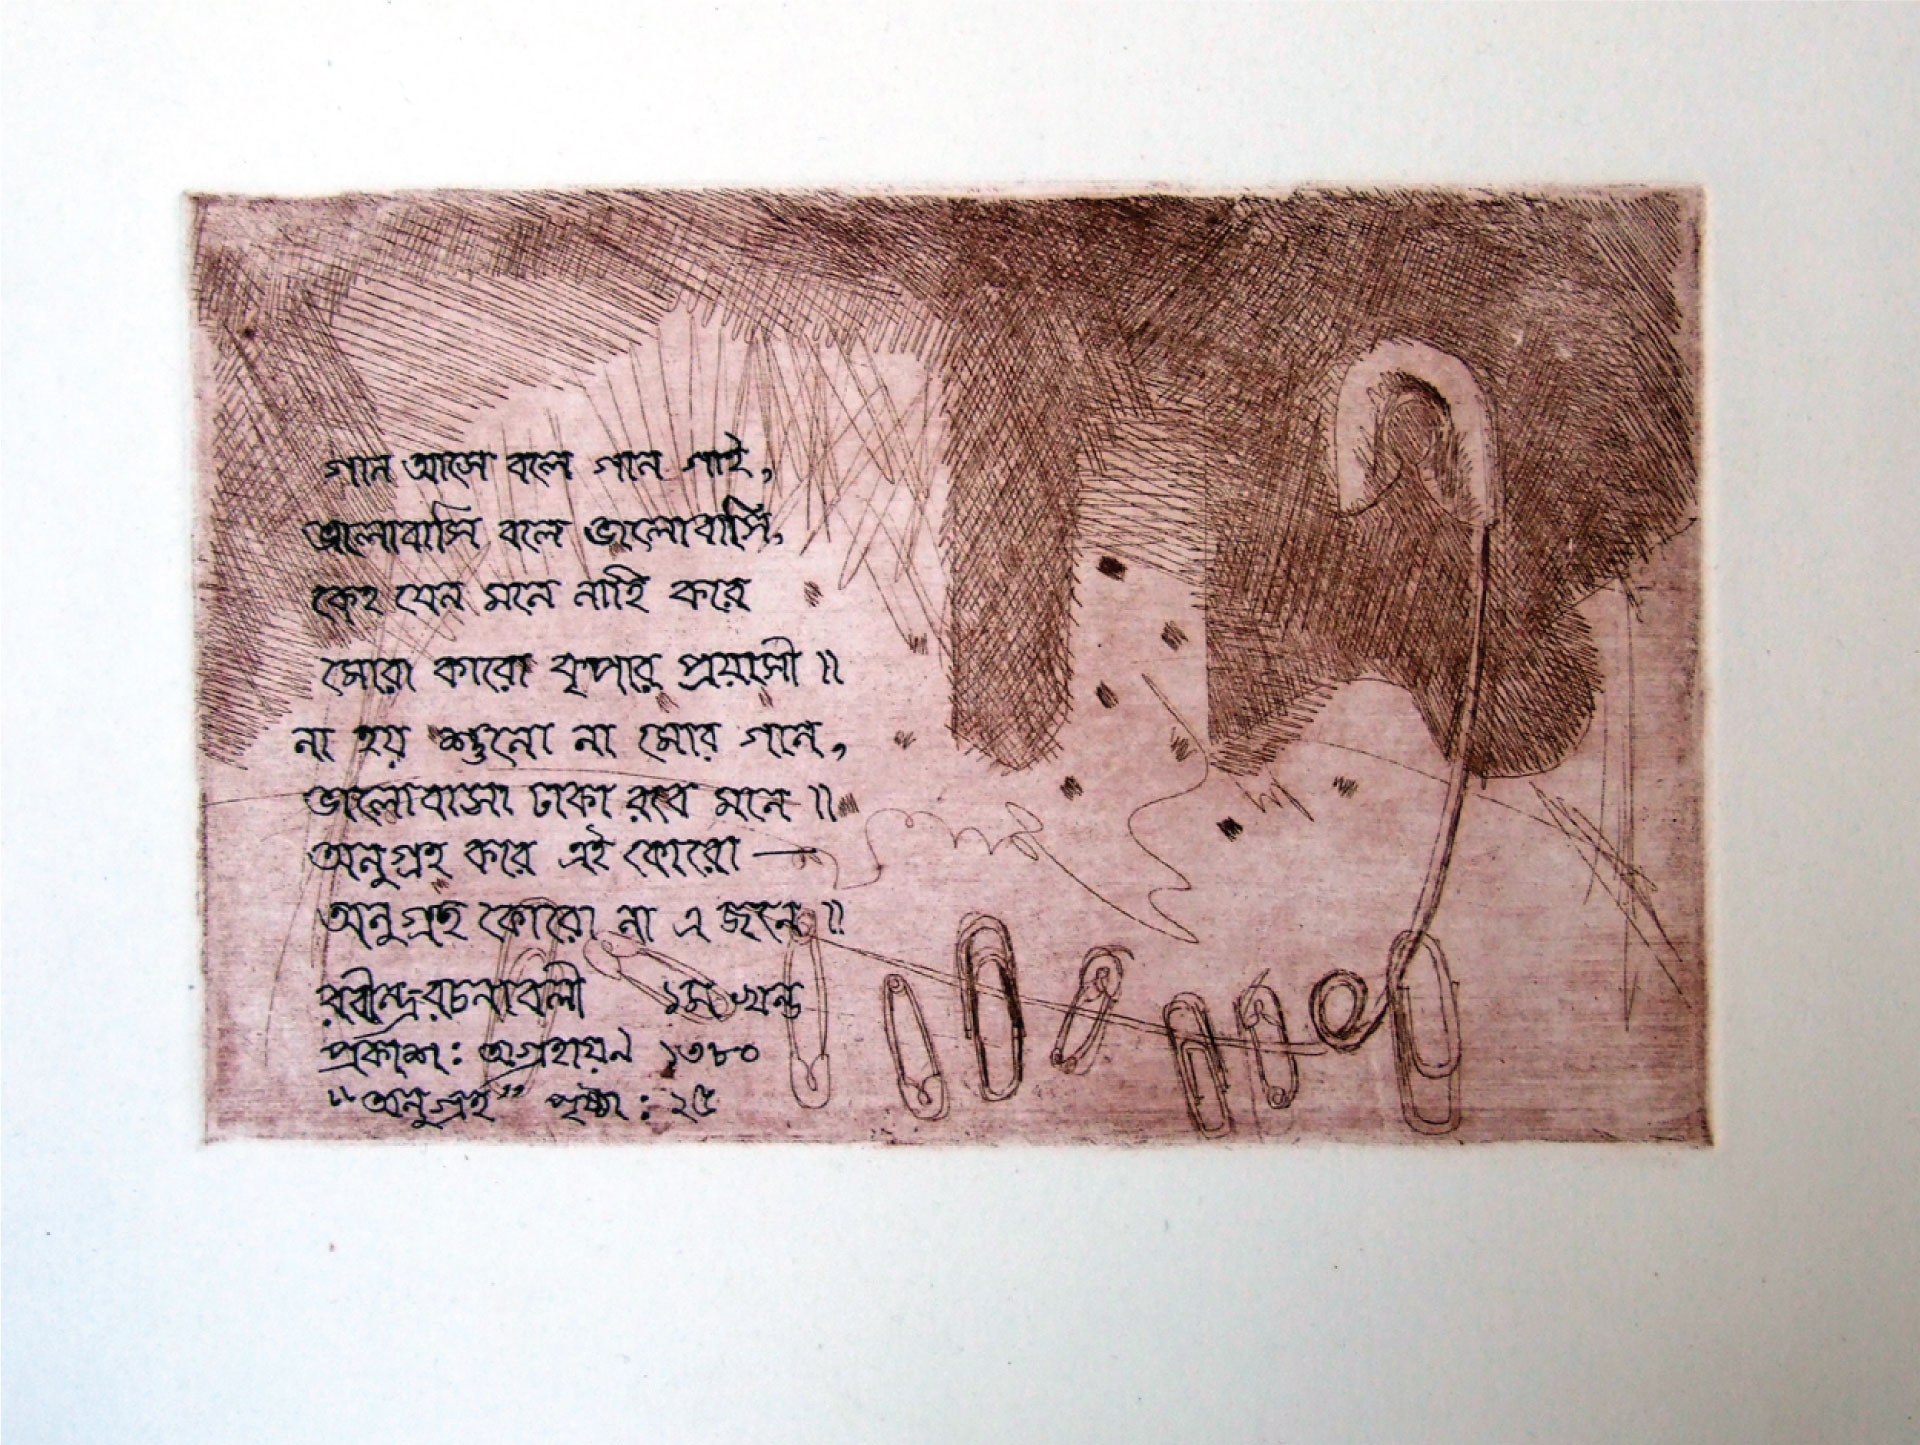 গান আসে বলে গান গাই,
ভালোবাসি বলে ভালোবাসি,
কেহ যেন মনে নাহি করে
মোরা কারো কৃপার প্রয়াসী ॥
না হয় শুনো না মোর গান,
ভালোবাসা ঢাকা রবে মনে ॥
অনুগ্রহ করে এই কোরো —
অনুগ্রহ কোরো না এ জনে ॥
রবীন্দ্ররচনাবলী ১ম খন্ড
প্রকাশ : অগ্রহায়ন ১৩৮০
“অনুগ্রহ” পৃষ্ঠা : ২৫